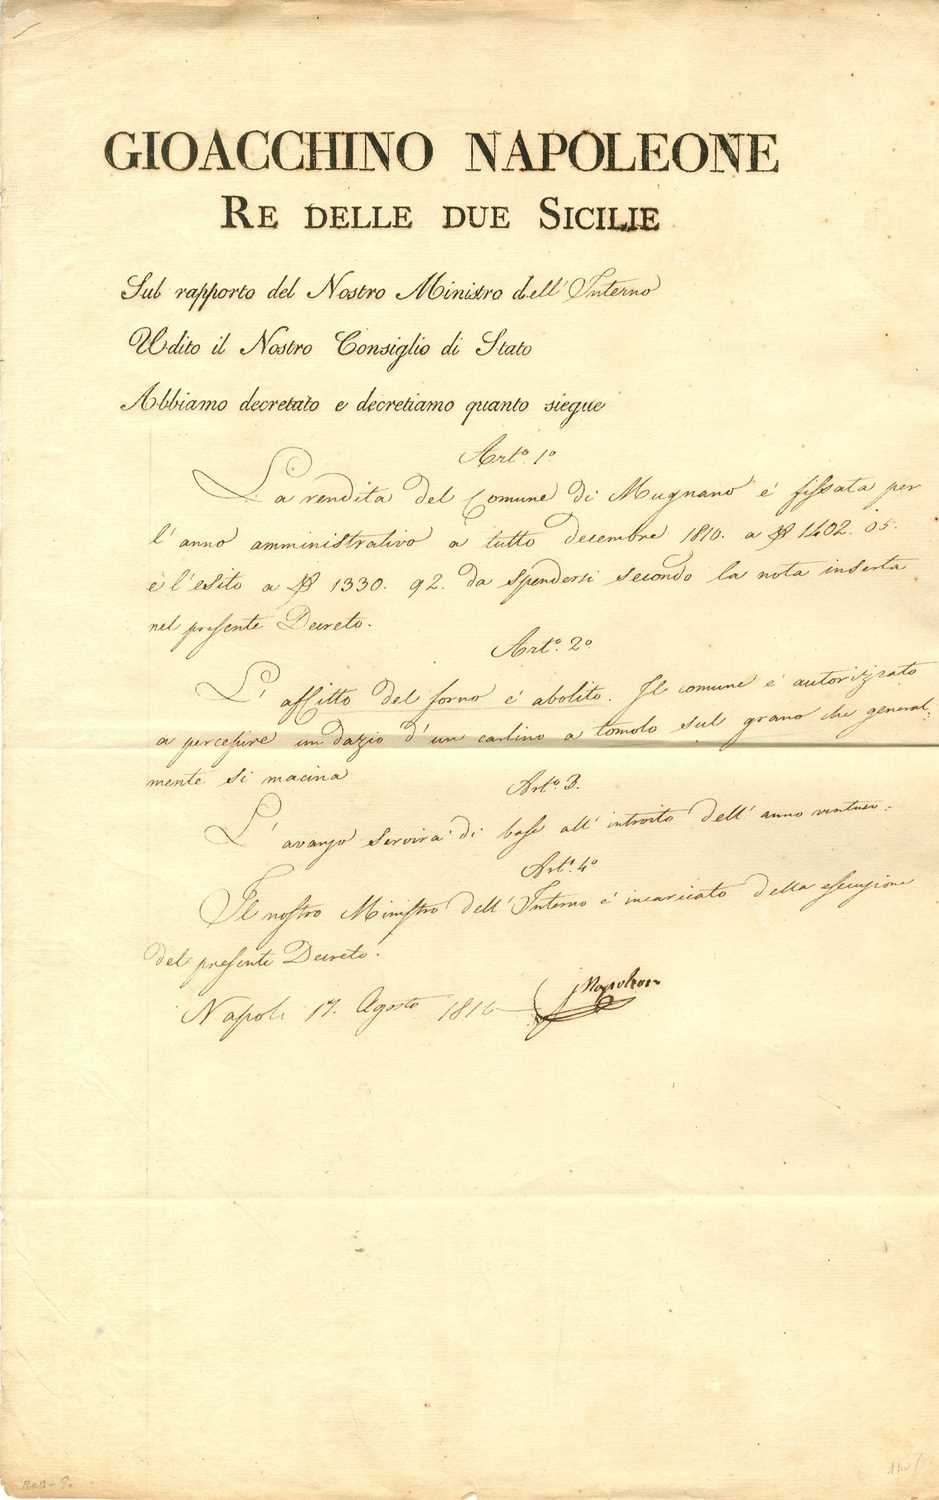 GIOACCHINO NAPOLEONE
RE DELLE DUE SICILIE
Sul rapporto del Nostro Ministro dell'Interno
Udito il Nostro Consiglio di Stato
Abbiamo decretato e decretiamo quanto siegue
Art.º 1º
La rendita del Comune di Mugnano é fissata per
l'anno amministrativo a tutto decembre 1810. a 1402. 05.
e l'esito a 1330. 92. da spendersi secondo la nota inserta
nel presente Decreto.
Art.º 2º
L'affitto del forno é abolito. Il comune é autorizzato
a percepire un dazio d'un carlino a tomolo sul grano che general=
mente si macina
Art.º 3.
L'avanzo servirá di base all'introito dell'anno venturo.
Art.º 4º
Il nostro Ministro dell'Interno é incaricato della esecuzione
del presente Decreto.
Napoli 17. Agosto 1810
J Napoleon